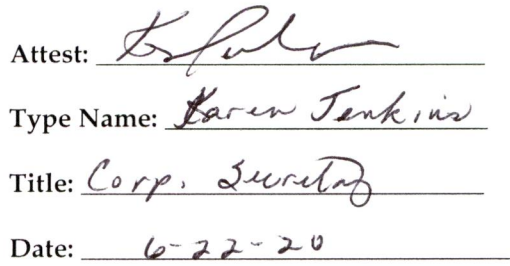 Attest:
Type Name: Karen Jenkins
Title: Corp. Secretary
Date: 6-22-20